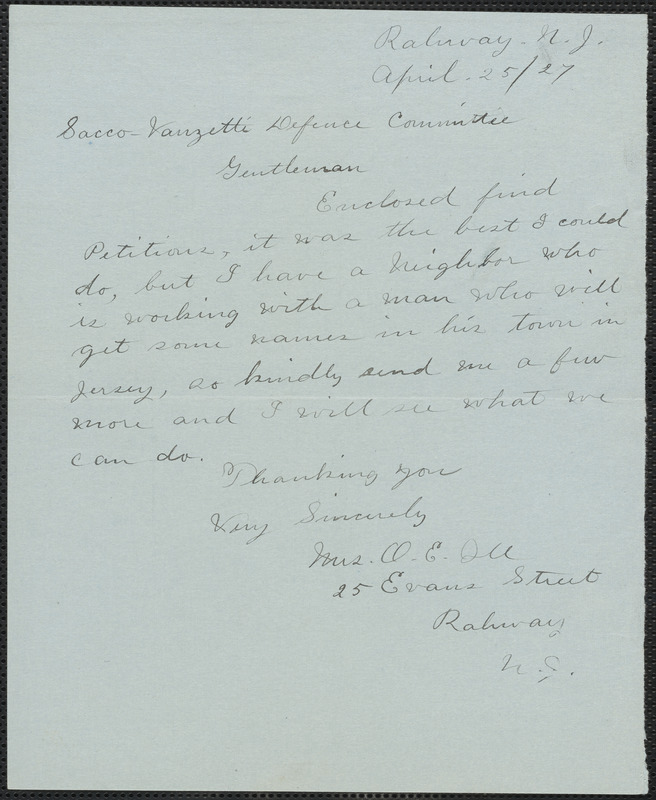 Rahway - N. J.
April - 25/27
Sacco-Vanzetti Defence Committee
Gentleman
Enclosed find
Petitions, it was the best I could
do, but I have a Neighbor who
is working with a man who will
get some names in his town in
Jersey, so kindly send me a few
more and I will see what we
can do.
Thanking you
Very Sincerely
Mrs. O. E.
25 Evans Street
Rahway
N. J.